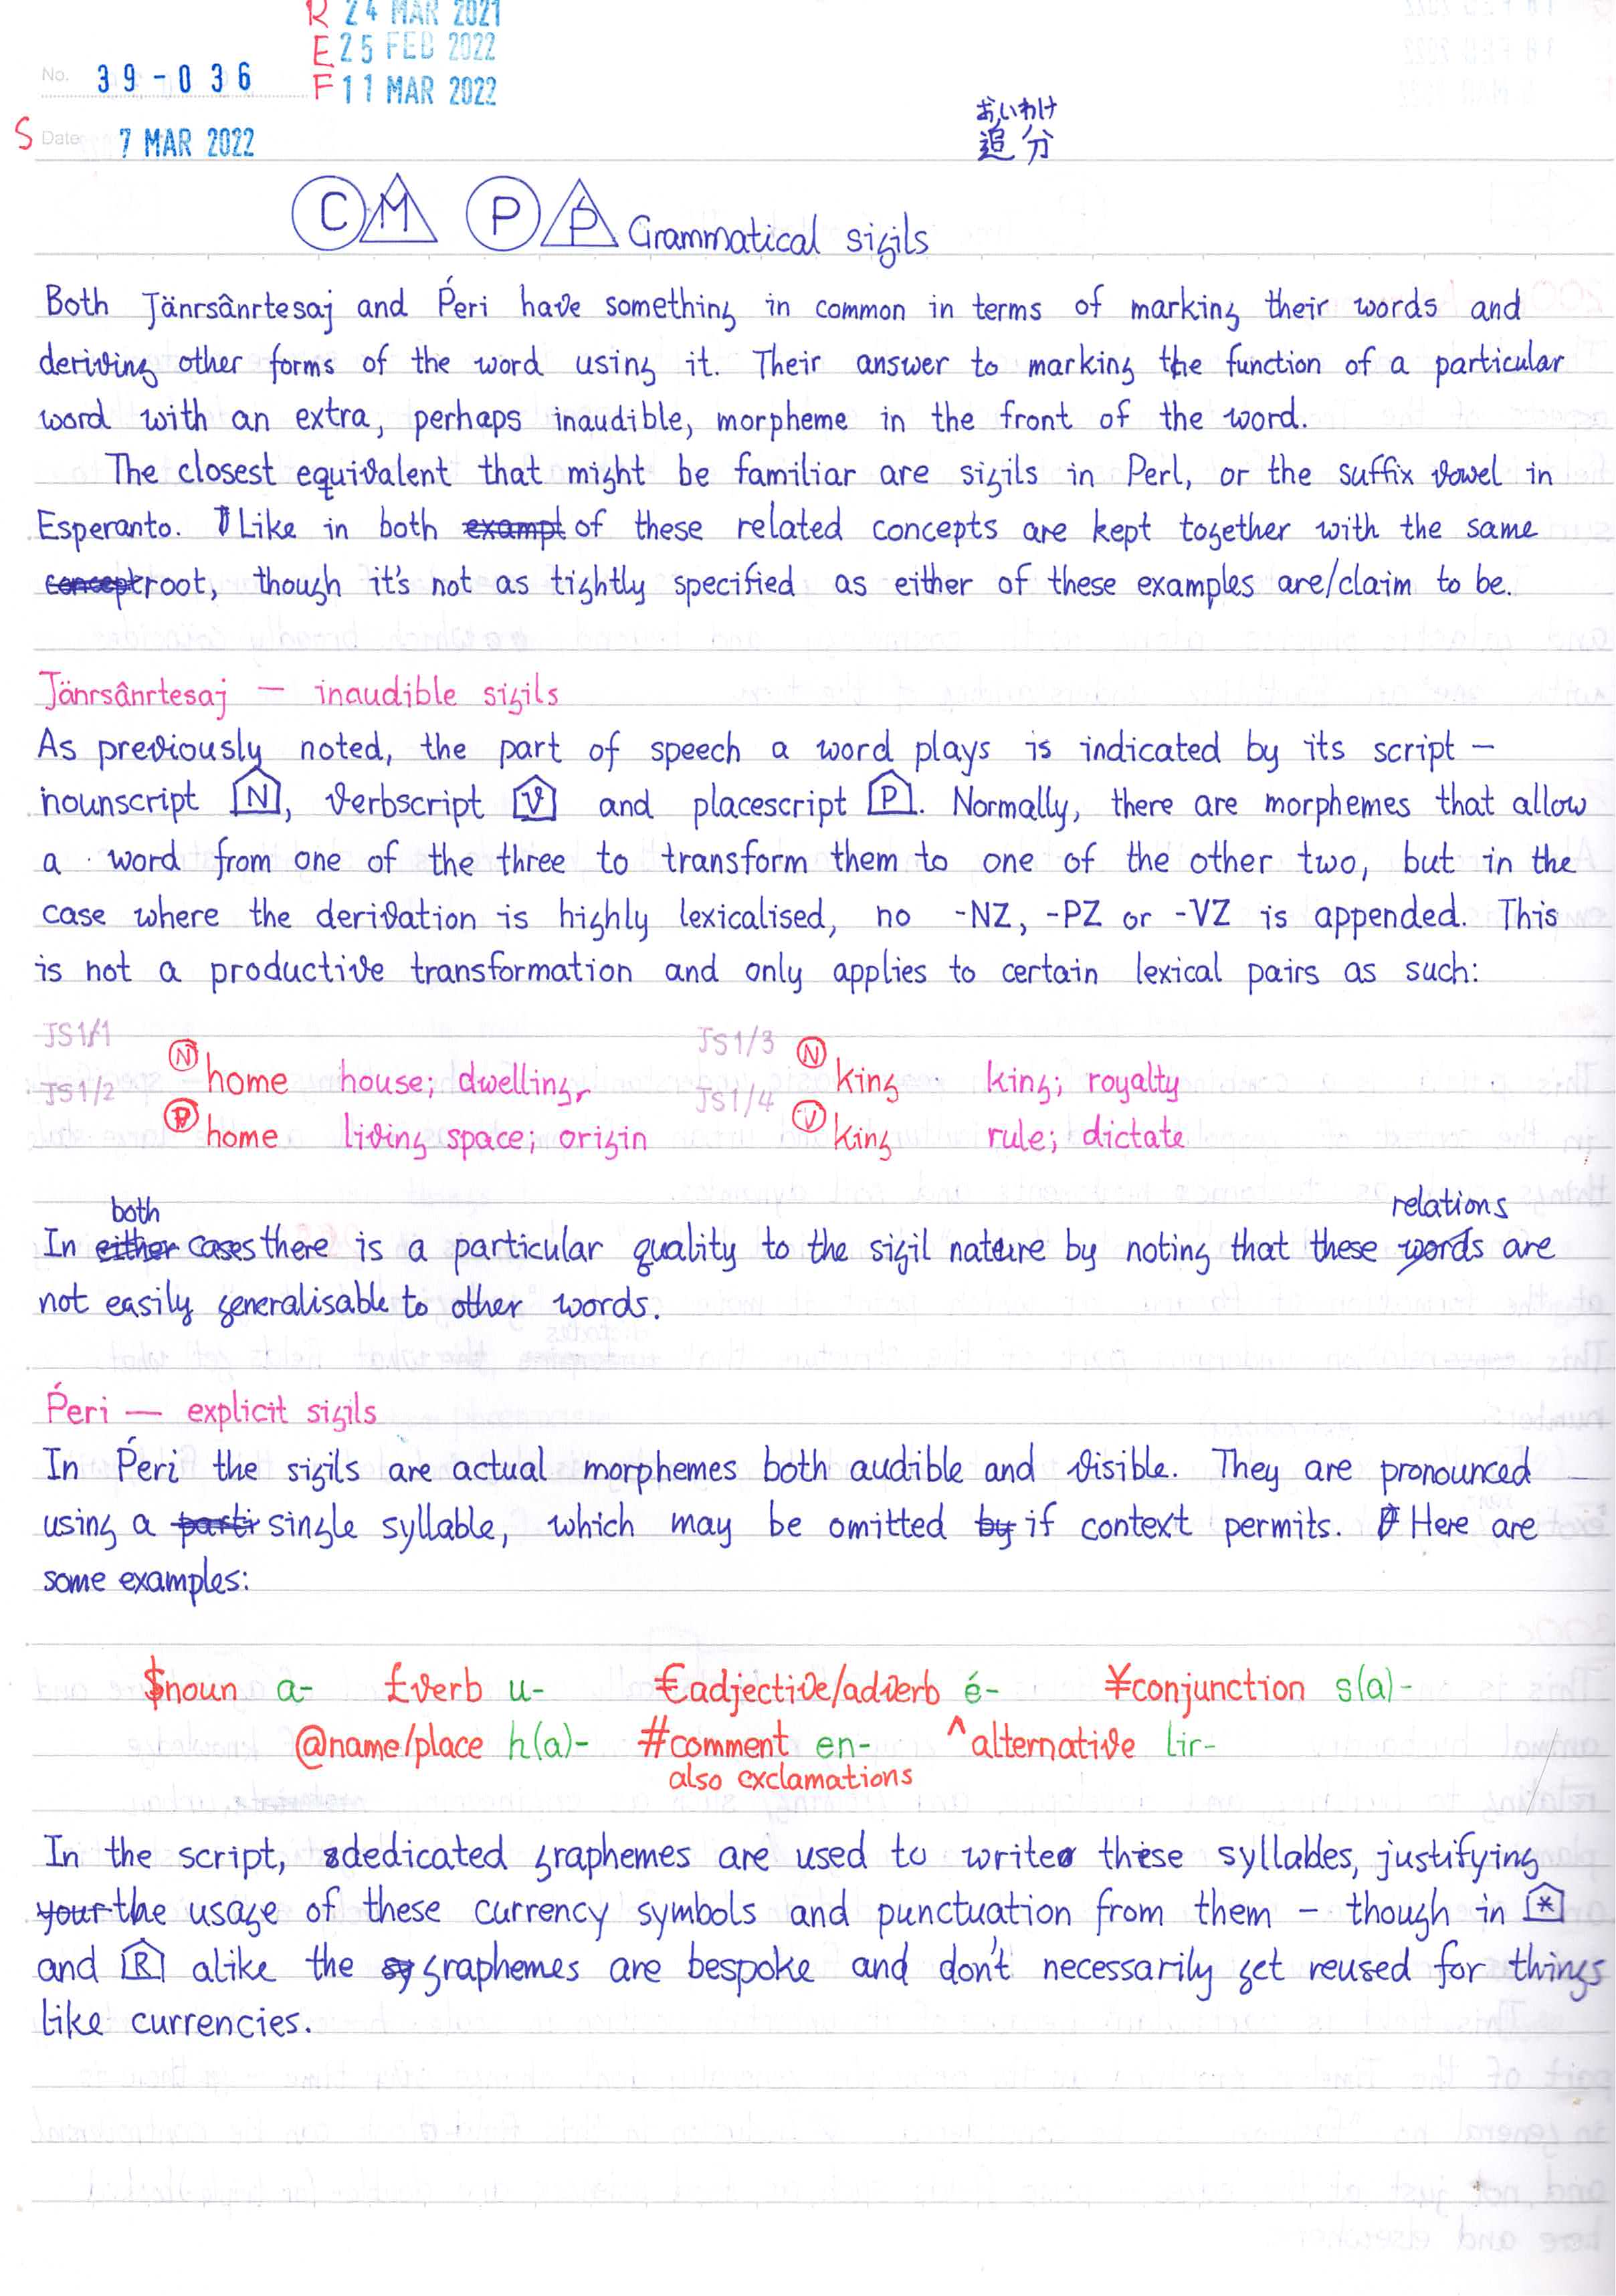 R 24 MAR 2021
E 25 FEB 2022
No. 39-036 F 11 MAR 2022
S Date 7 MAR 2022
おいわけ
追分
C M P Ṕ Grammatical sigils
Both Jänrsânrtesaj and Ṕeri have something in common in terms of marking their words and
deriving other forms of the word using it. Their answer to marking the function of a particular
word with an extra, perhaps inaudible, morpheme in the front of the word.
The closest equivalent that might be familiar are sigils in Perl, or the suffix vowel in
Esperanto. Like in both exampt of these related concepts are kept together with the same
concept root, though it's not as tightly specified as either of these examples are/claim to be.
Jänrsânrtesaj — inaudible sigils
As previously noted, the part of speech a word plays is indicated by its script –
nounscript N, verbscript V and placescript P. Normally, there are morphemes that allow
a word from one of the three to transform them to one of the other two, but in the
case where the derivation is highly lexicalised, no -NZ, -PZ or -VZ is appended. This
is not a productive transformation and only applies to certain lexical pairs as such:
JS1/1 N home house; dwelling, JS1/3 N king king; royalty
JS1/2 P home living space; origin JS1/4 V king rule; dictate
both relations
In either cases there is a particular quality to the sigil nature by noting that these words are
not easily generalisable to other words.
Ṕeri — explicit sigils
In Ṕeri the sigils are actual morphemes both audible and visible. They are pronounced
using a parti single syllable, which may be omitted by if context permits. Here are
some examples:
$noun a- £verb u- €adjective/adverb é- ¥conjunction s(a)-
@name/place h(a)- #comment en- ^alternative lir-
also exclamations
In the script, dedicated graphemes are used to write these syllables, justifying
your the usage of these currency symbols and punctuation from them – though in *
and R alike the sy graphemes are bespoke and don't necessarily get reused for things
like currencies.